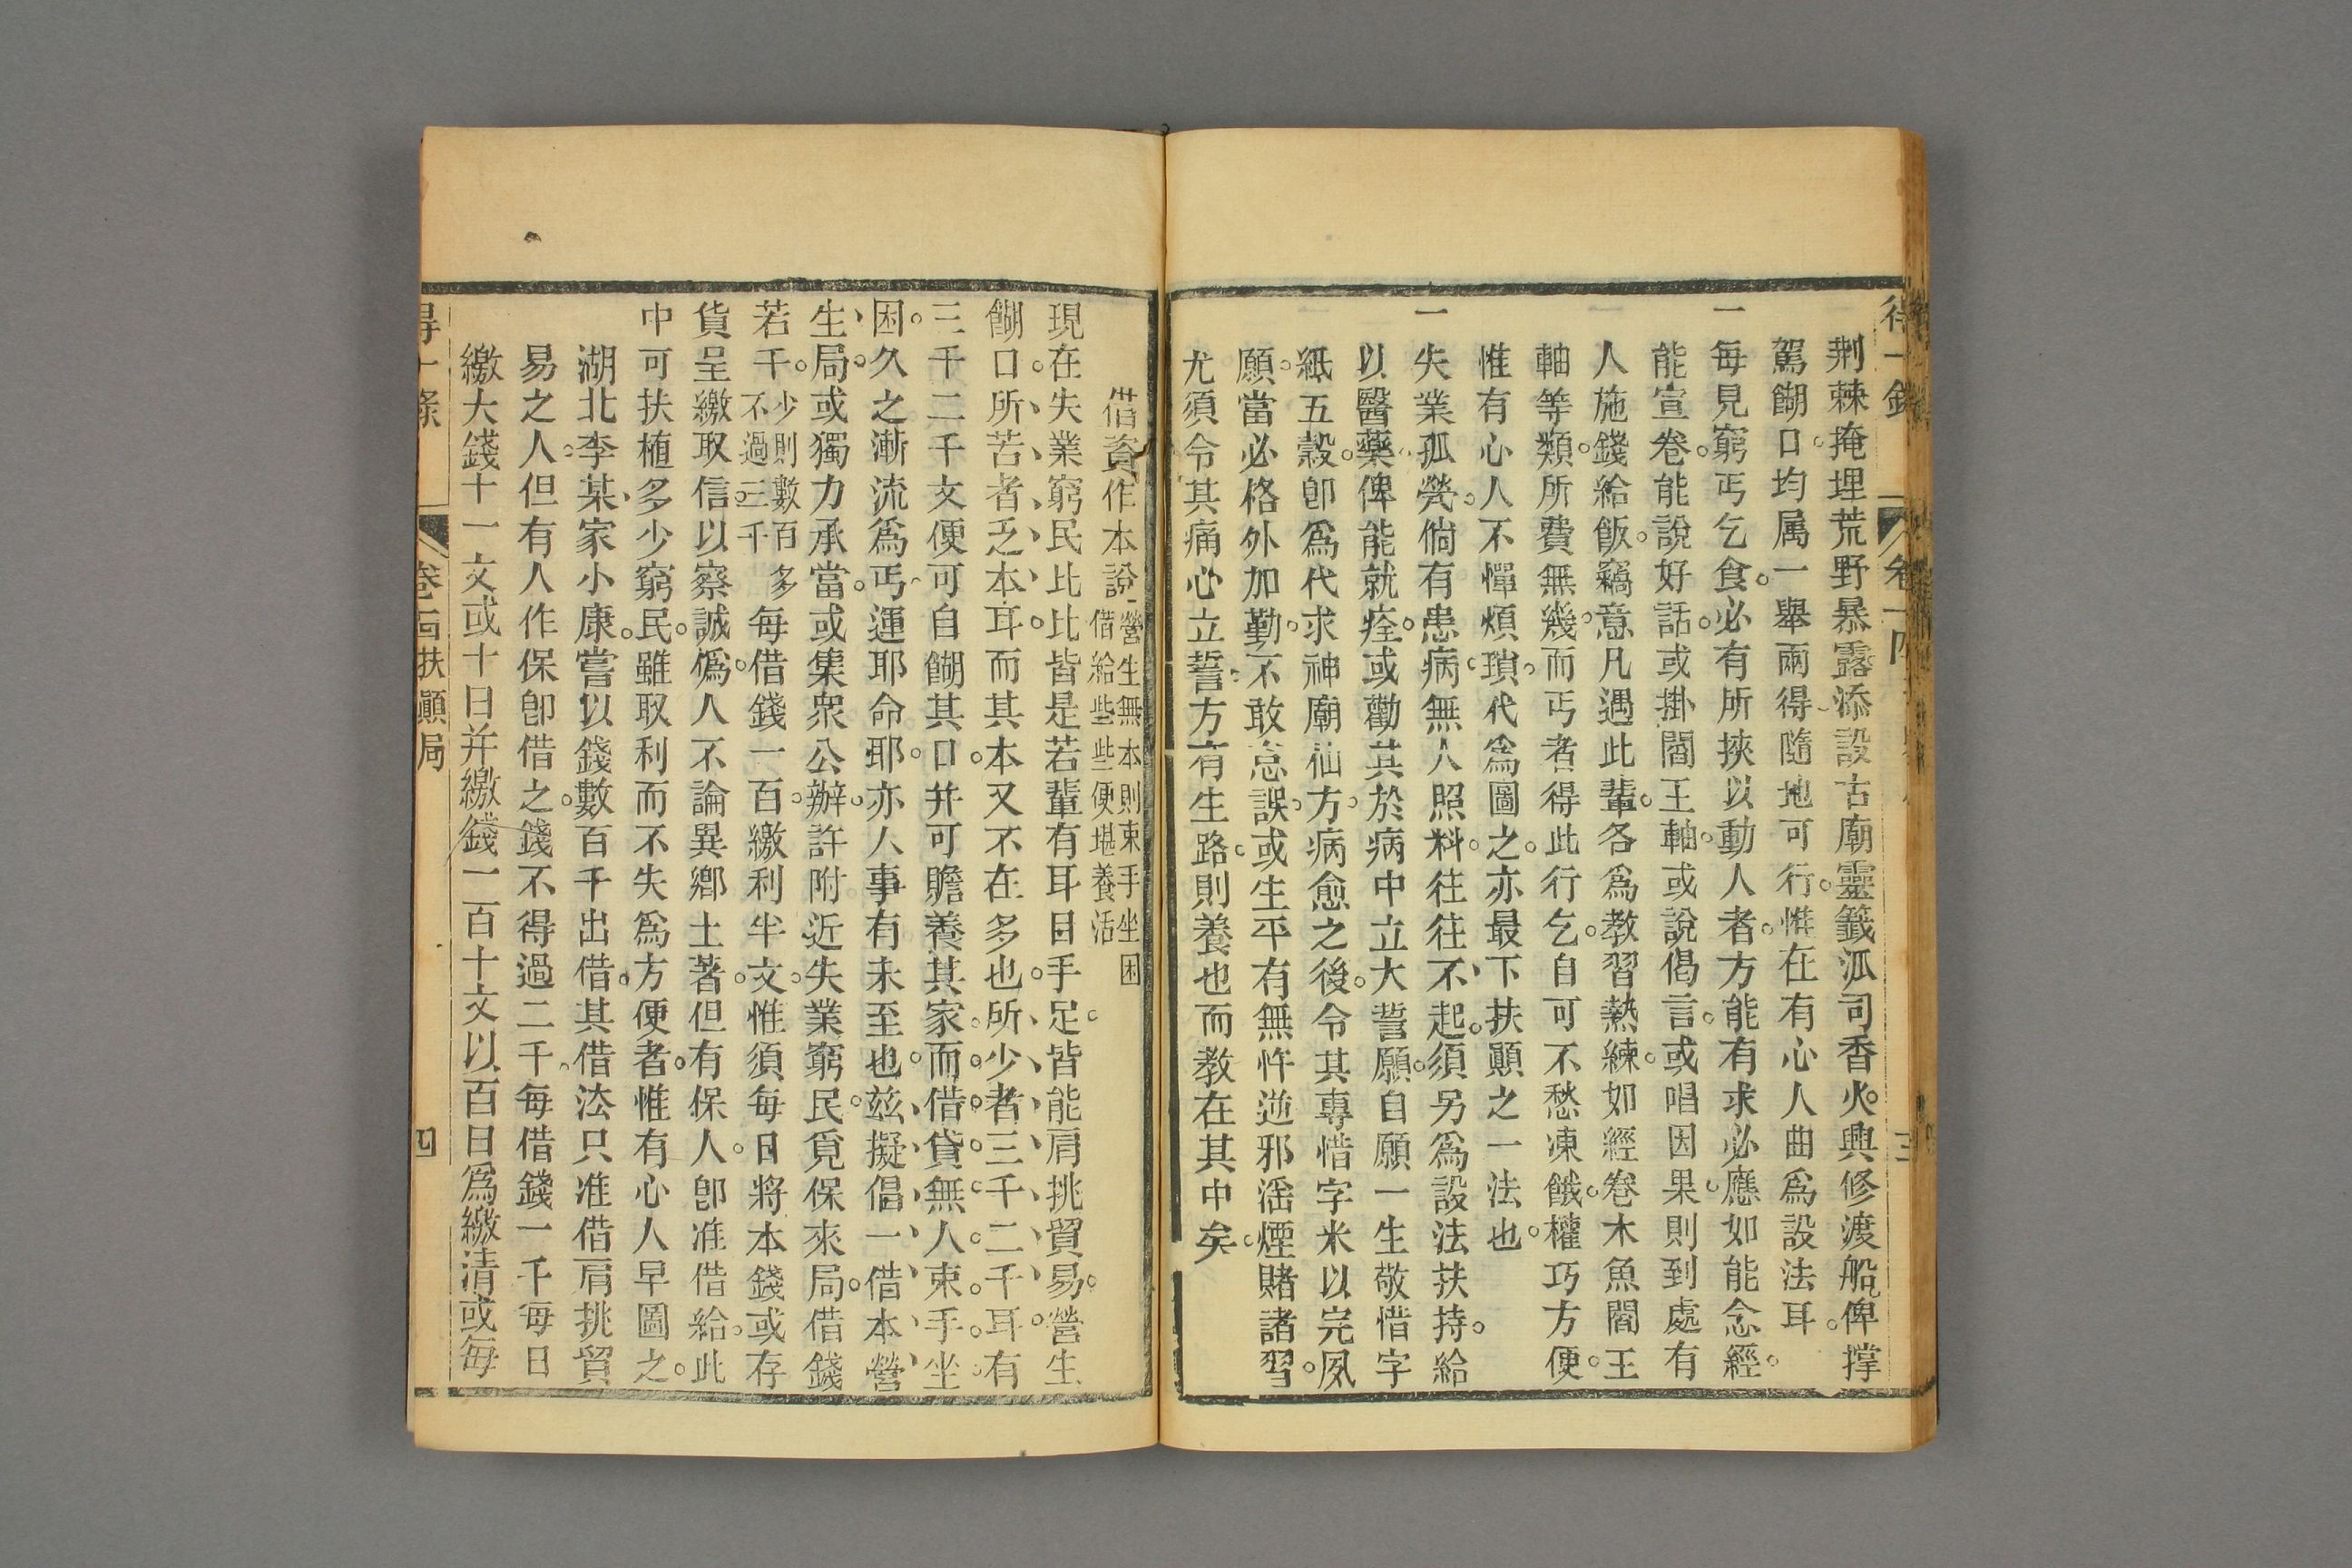 荆棘掩埋荒野暴露添設古廟靈籤派司香火興修渡船俾撐
駕餬口均属一舉兩得隨地可行惟在有心人曲爲設法耳
一每見窮丐乞食必有所挾以動人者方能有求必應如能念經
能宣卷能說好話或掛閻王軸或說偈言或唱因果則到處有
人施錢給飯竊意凡遇此輩各爲教習熱練如經卷木魚閻王
軸等類所費無幾而丐者得此行乞自可不愁凍餓權巧方便
惟有心人不憚煩瑣代爲圖之亦最下扶顚之一法也
一失業孤煢倘有患病無人照料往往不起須另爲設法扶持給
以醫藥俾能就痊或勸其於病中立大誓願自願一生敬惜字
紙五穀卽爲代求神廟仙方病愈之後令其專惜字米以完夙
願當必格外加勤不敢怠誤或生平有無忤逆邪淫煙賭諸習
尤須令其痛心立誓方有生路則養也而教在其中矣
三
借資作本說營生無本則束手坐困
借給些些便堪養活
現在失業窮民比比皆是若輩有耳目手足皆能肩挑貿易營生
餬口所苦者乏本耳而其本又不在多也所少者三千二千耳有
三千二千文便可自餬其口并可贍養其家而借貸無人束手坐
困久之漸流爲丐運耶命耶亦人事有未至也茲擬倡一借本營
生局或獨力承當或集衆公辦許附近失業窮民覓保來局借錢
若干少則數百多
不過三千每借錢一百繳利半文惟須每日將本錢或存
貨呈繳取信以察誠僞人不論異鄕土著但有保人卽准借給此
中可扶植多少窮民雖取利而不失爲方便者惟有心人早圖之
湖北李某家小康嘗以錢數百千出借其借法只准借肩挑貿
易之人但有人作保卽借之錢不得過二千每借錢一千每日
繳大錢十一文或十日并繳錢一百十文以百日爲繳清或每
扶顚局
四